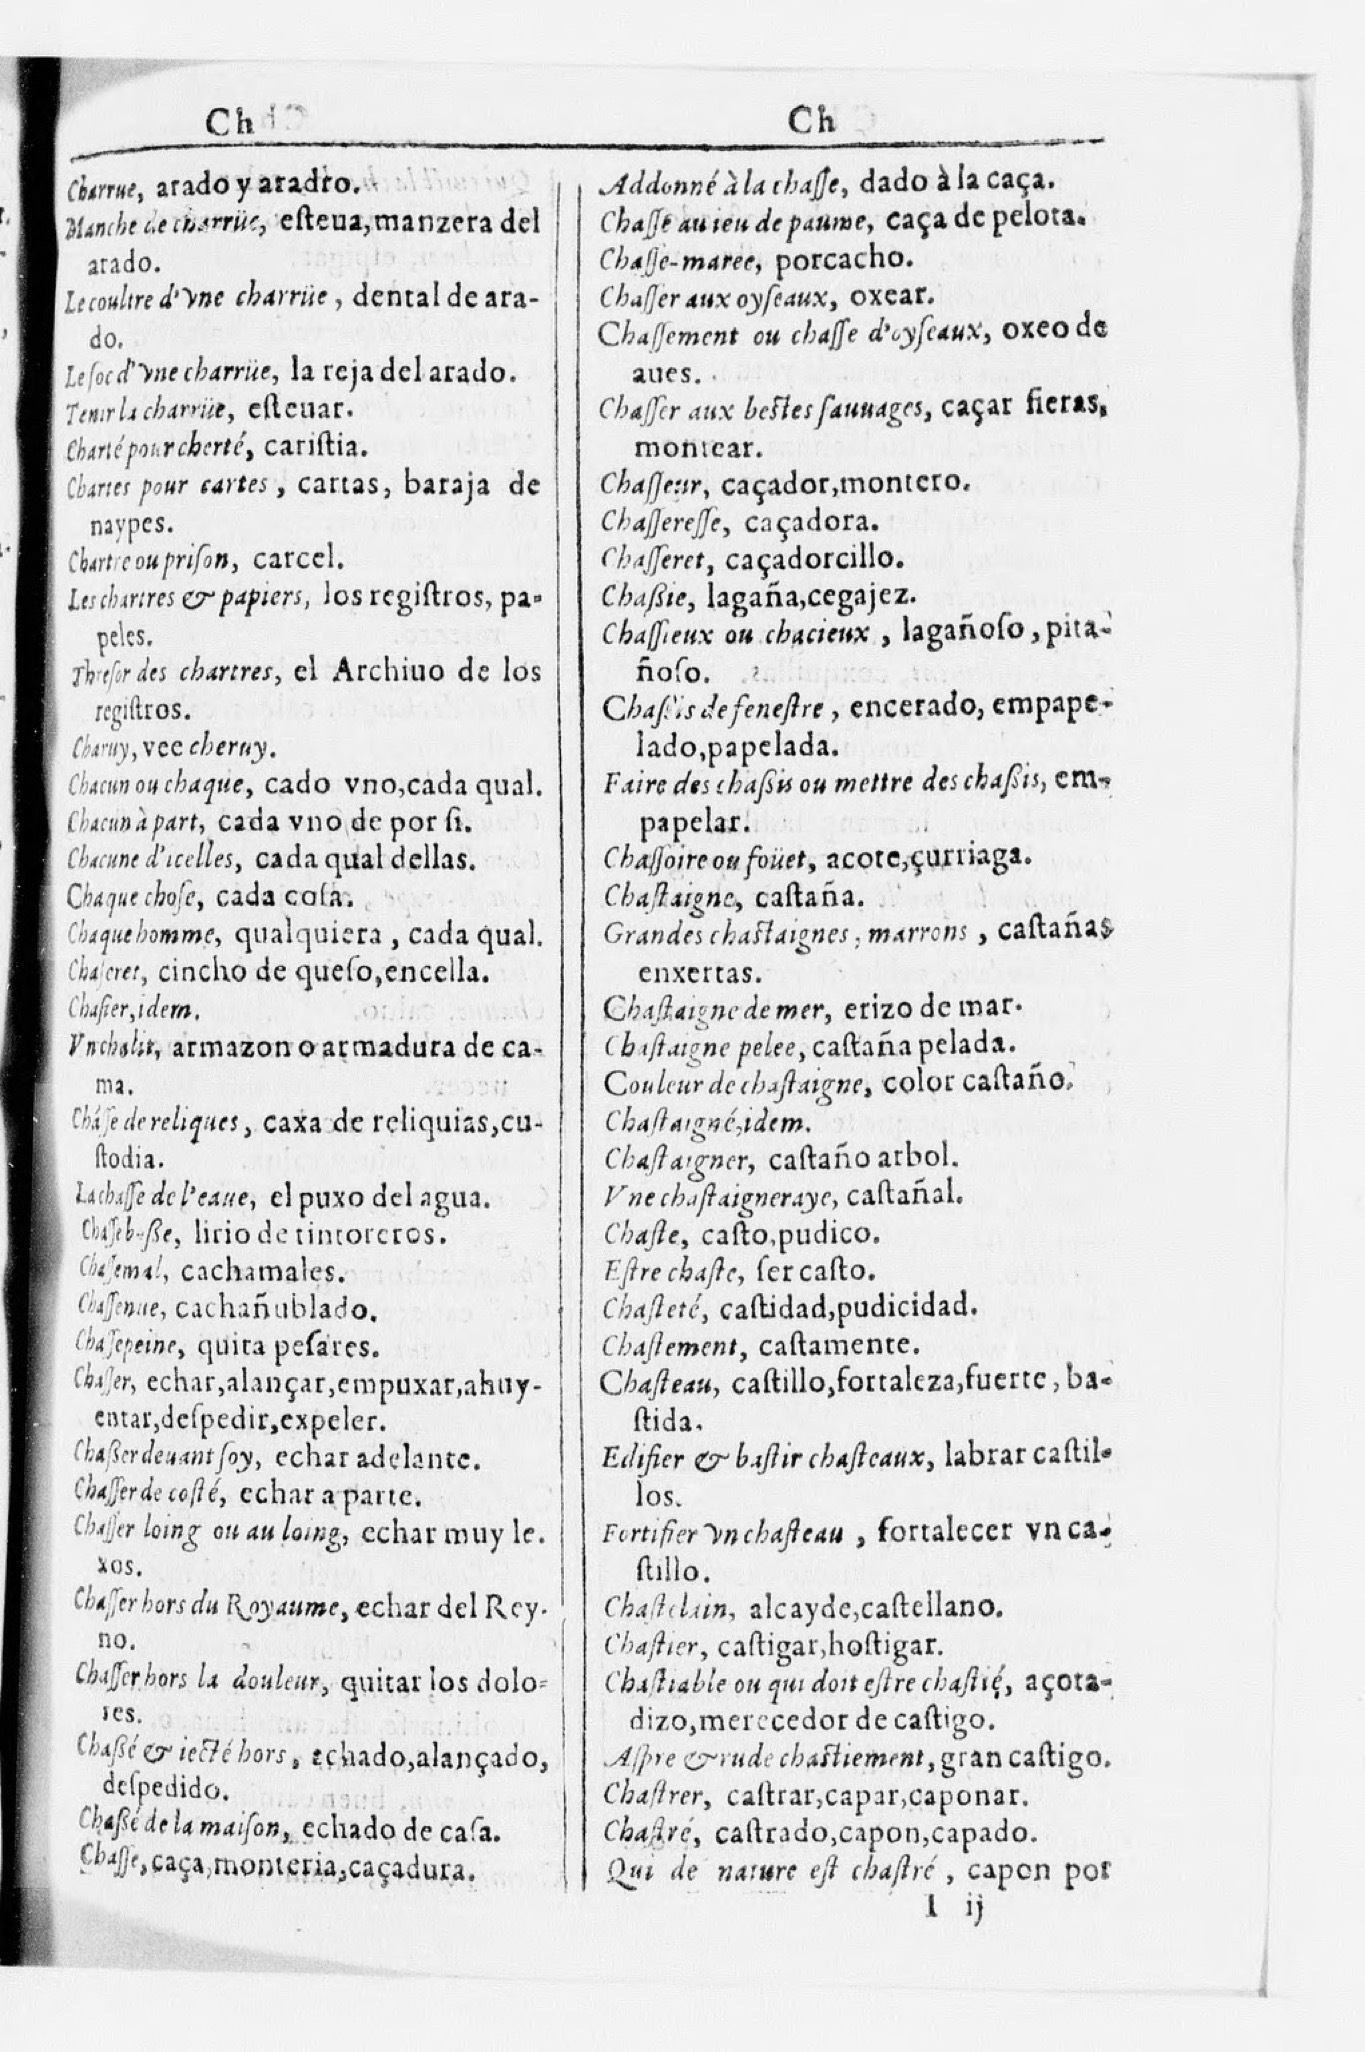 Ch
Charrue, arado y aradro.
Manche de charrüe, esteua,manzera del
arado.
Le coultre d'vne charrüe, dental de ara-
do.
Le ſoc d'vne charrüe, la reja del arado.
Tenir la charrüe, esteuar.
Charté pour cherté, cariſtia.
Chartes pour cartes, cartas, baraja de
naypes.
Chartre ou priſon, carcel.
Les chartres & papiers, los regiſtros, pa-
peles.
Threſor des chartres, el Archiuo de los
regiſtros.
Charuy, vee cheruy.
Chacun ou chaque, cado vno,cada qual.
Chacun à part, cada vno de por ſi.
Chacune d'icelles, cada qual dellas.
Chaque choſe, cada coſa.
Chaque homme, qualquiera, cada qual.
Chaſeret, cincho de queſo,encella.
Chaſier,idem.
Vn chalit, armazon o armadura de ca-
ma.
Cháſſe de reliques, caxa de reliquias,cu-
ſtodia.
La chaſſe de l'eaue, el puxo del agua.
Chaſſeboſſe, lirio de tintoreros.
Chaſſemal, cachamales.
Chaſſenue, cachañublado.
Chaſſepeine, quita peſares.
Chaſſer, echar,alançar,empuxar,ahuy-
entar,deſpedir,expeler.
Chaſſer deuant ſoy, echar adelante.
Chaſſer de coſté, echar a parte.
Chaſſer loing ou au loing, echar muy le.
xos.
Chaſſer hors du Royaume, echar del Rey-
no.
Chaſſer hors la douleur, quitar los dolo-
res.
Chaßé & iecté hors, echado,alançado,
deſpedido.
Chaßé de la maiſon, echado de caſa.
Chaſſe,caça,monteria,caçadura.
Ch
Addonné à la chaſſe, dado à la caça.
Chaſſe au ieu de paume, caça de pelota.
Chaſſe-maree, porcacho.
Chaſſer aux oyſeaux, oxear.
Chaſſement ou chaſſe d'oyſeaux, oxeo de
aues.
Chaſſer aux beſtes ſauuages, caçar fieras,
montear.
Chaſſeur, caçador,montero.
Chaſſereſſe, caçadora.
Chaſſeret, caçadorcillo.
Chaßie, lagaña,cegajez.
Chaſſieux ou chacieux, lagañoſo, pita-
ñoſo.
Chaſſis de feneſtre, encerado, empape-
lado,papelada.
Faire des chaßis ou mettre des chaßis, em-
papelar.
Chaſſoire ou foüet, acote,çurriaga.
Chaſtaigne, caſtaña.
Grandes chaſtaignes, marrons, caſtañas
enxertas.
Chaſtaigne de mer, erizo de mar.
Chaſtaigne pelee, caſtaña pelada.
Couleur de chaſtaigne, color caſtaño.
Chaſtaigné,idem.
Chaſtaigner, caſtaño arbol.
Vne chaſtaigneraye, caſtañal.
Chaſte, caſto,pudico.
Eſtre chaſte, ſer caſto.
Chaſteté, caſtidad,pudicidad.
Chaſtement, caſtamente.
Chaſteau, caſtillo,fortaleza,fuerte, ba-
ſtida.
Edifier & baſtir chaſteaux, labrar caſtil-
los.
Fortifier vn chaſteau, fortalecer vn ca-
ſtillo.
Chaſtelain, alcayde,caſtellano.
Chaſtier, caſtigar,hoſtigar.
Chaſtiable ou qui doit eſtre chaſtié, açota-
dizo,merecedor de caſtigo.
Aſpre & rude chaſtiement, gran caſtigo.
Chaſtrer, caſtrar,capar,caponar.
Chaſtré, caſtrado,capon,capado.
Qui de nature eſt chaſtré, capon por
I ij